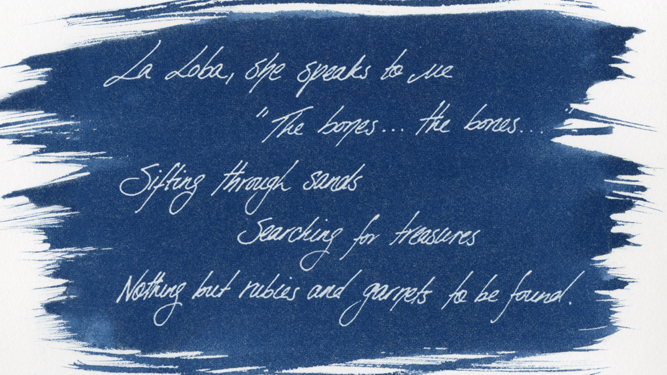 La Loba, she speaks to me
"The bones... the bones..."
Sifting through sands
Searching for treasures
Nothing but rubies and garnets to be found.